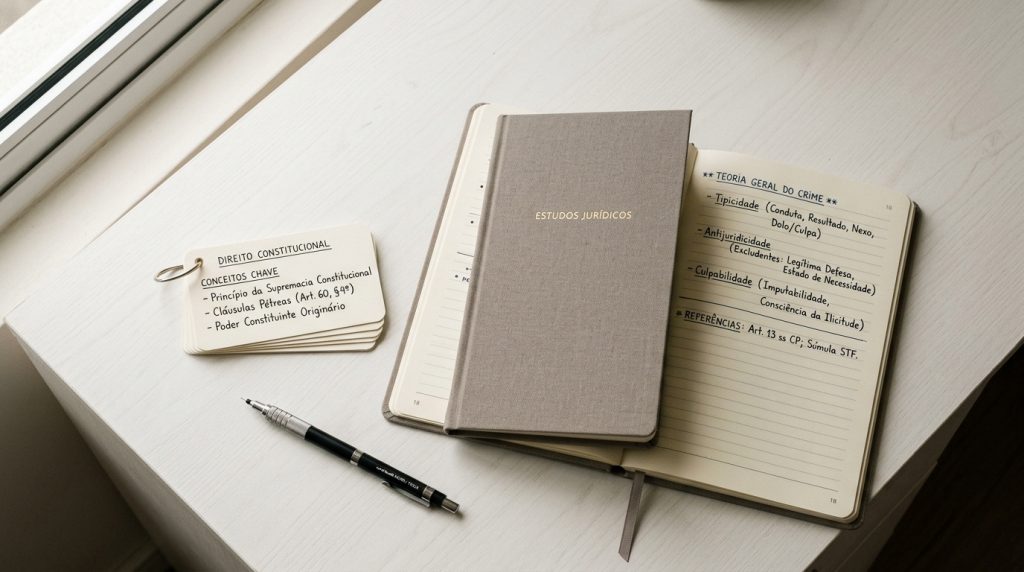 DIREITO CONSTITUCIONAL
CONCEITOS CHAVE
- Princípio da Supremacia Constitucional
- Cláusulas Pétreas (Art. 60, §4º)
- Poder Constituinte Originário
ESTUDOS JURÍDICOS
18
** TEORIA GERAL DO CRIME **
- Tipicidade (Conduta, Resultado, Nexo,
Dolo/Culpa)
- Antijuridicidade
(Excludentes: Legítima Defesa,
Estado de Necessidade)
- Culpabilidade (Imputabilidade,
Consciência da Ilicitude)
* REFERÊNCIAS: Art. 13 ss CP; Súmula STF.
18